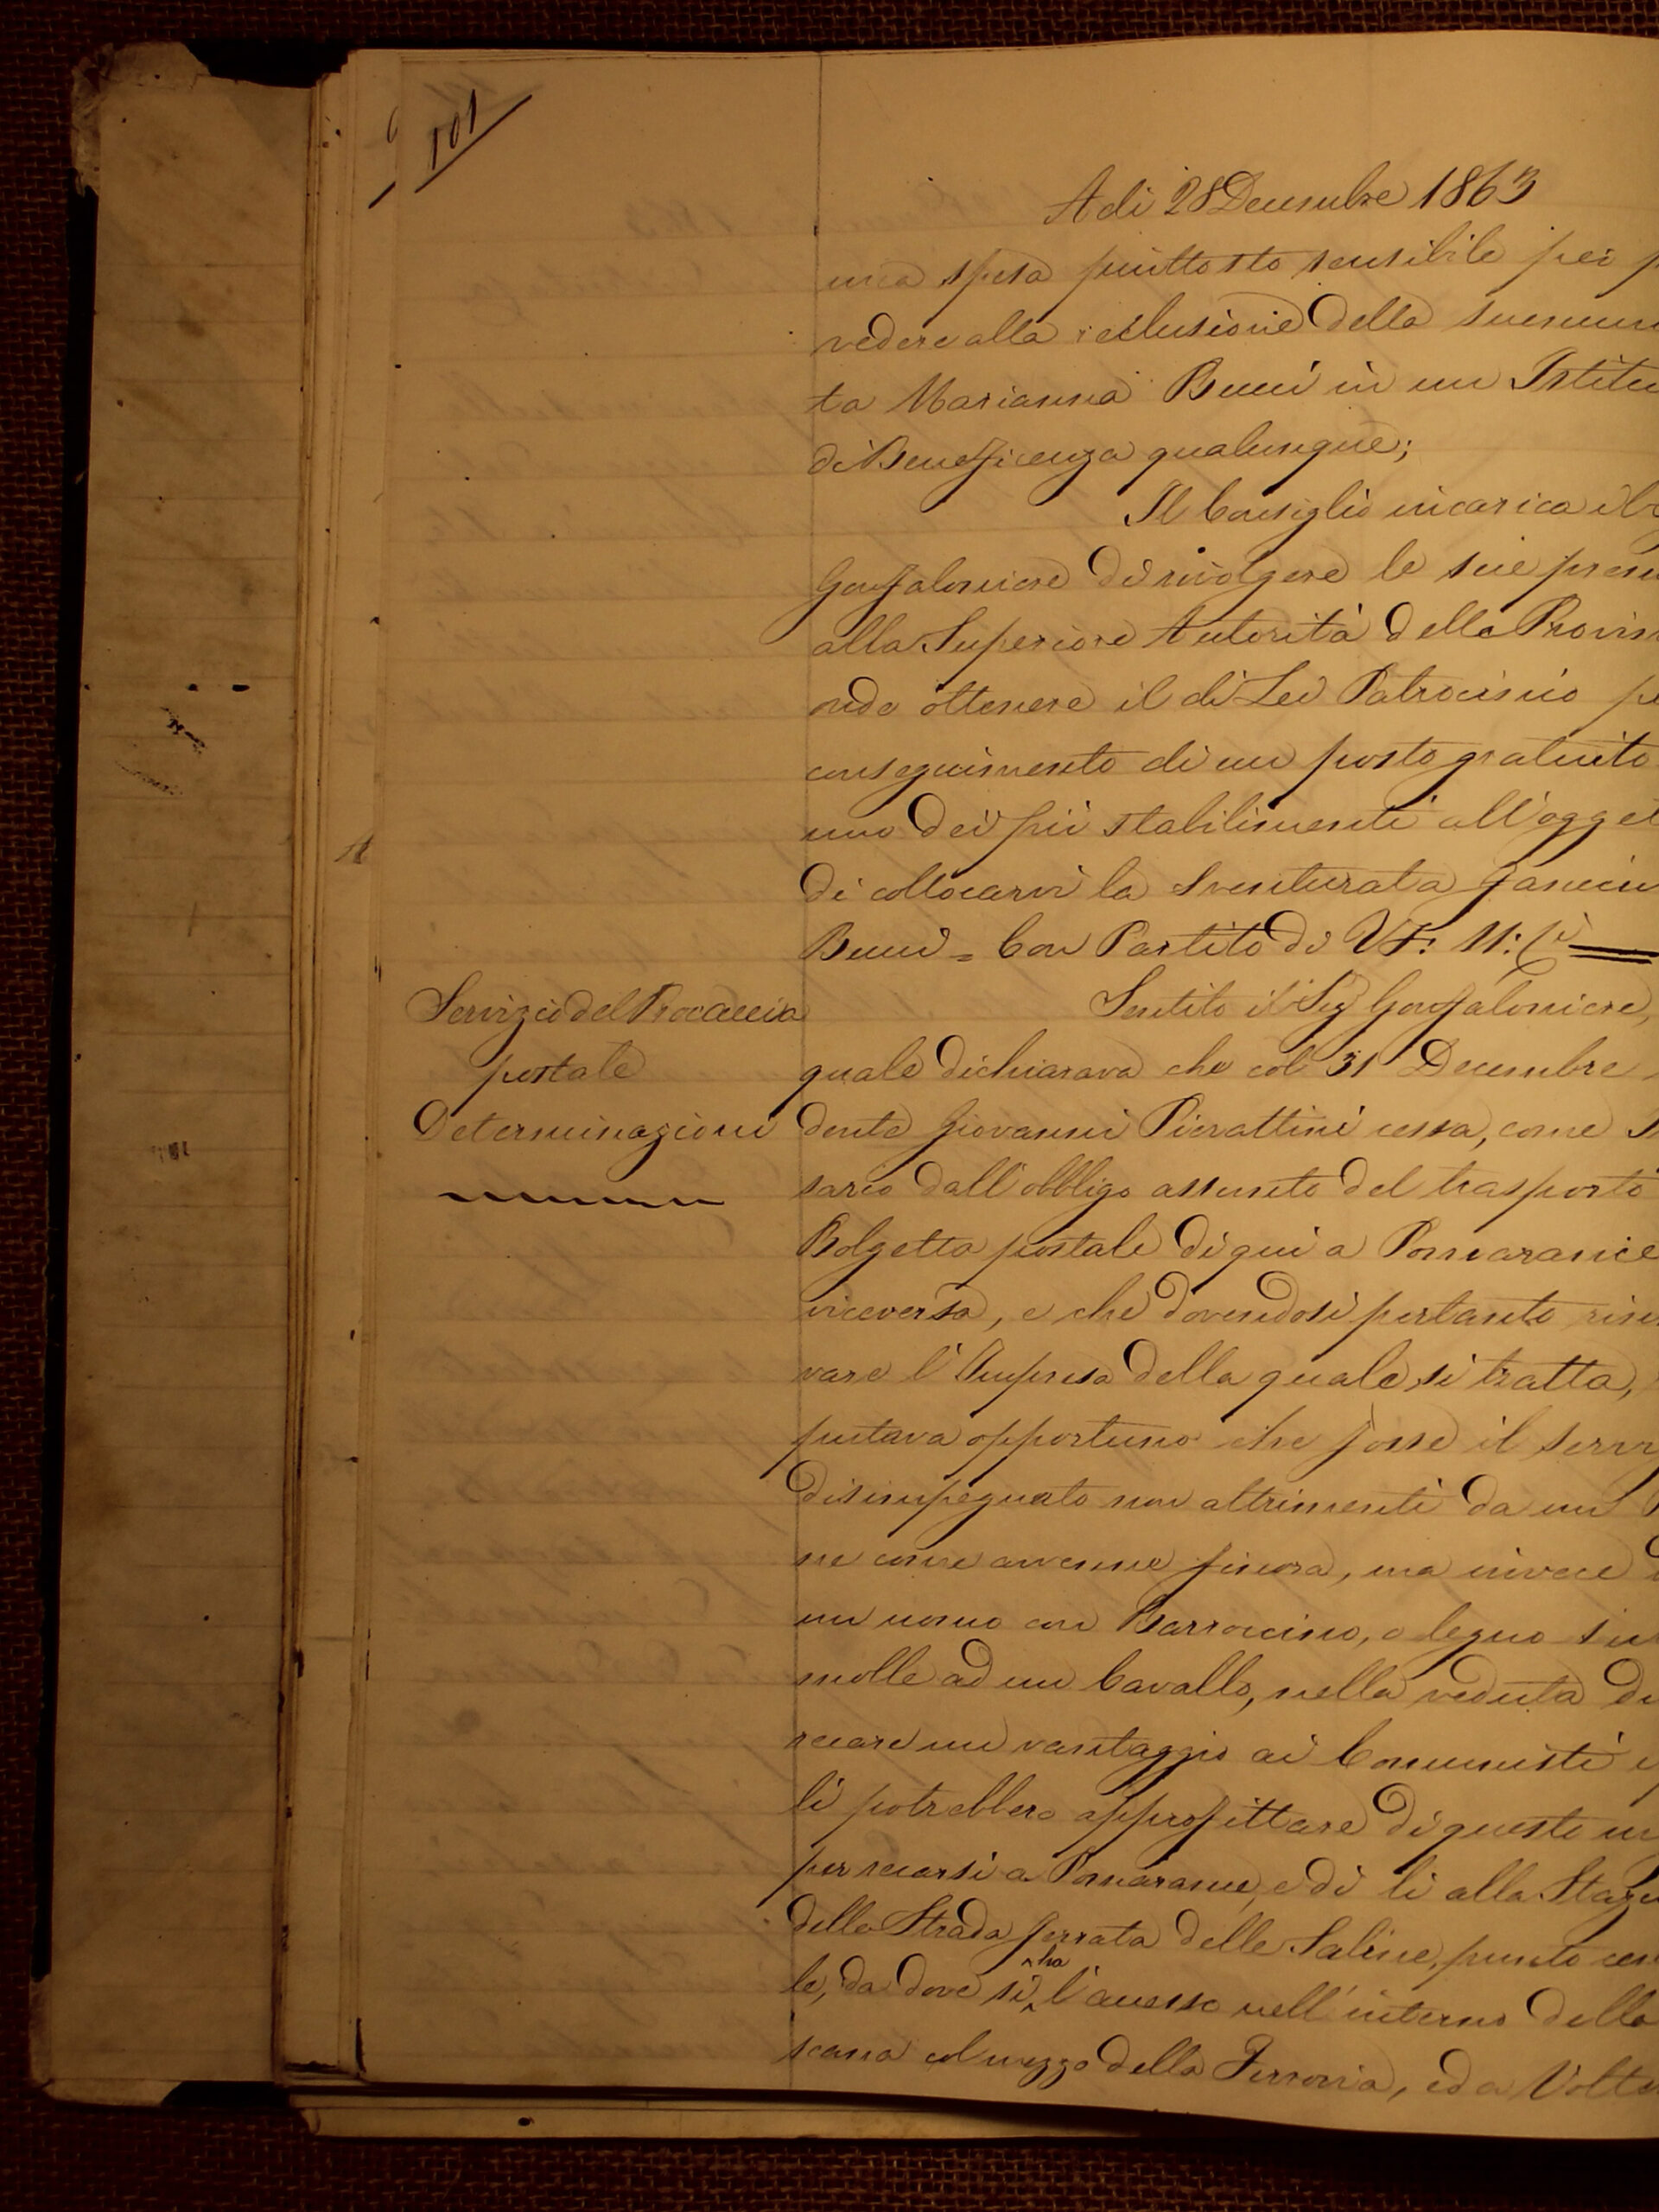 101
Adi 28 Decembre 1863
una spesa piuttosto sensibile per p
vedere alla reclusione della suenun
ta Marianna Bucci in un Istitu
di Beneficenza qualunque;
Il Consiglio incarica il
Gonfaloniere di rivolgere le sue prem
alla Superiore Autorità della Provin
onde ottenere il di Lei Patrocinio pe
conseguimento di un posto gratuito
uno dei pii stabilimenti all'ogget
di collocarvi la sventurata fanciu
Bucci = Con Partito di VF: 11:
Servizio del Procaccia
postale
Determinazioni
Sentito il Sig Gonfaloniere,
quale dichiarava che col 31 Decembre
dente Giovanni Pierattini cessa, come I
sario dall'obbligo assunto del trasporto
Bolgetta postale di qui a Pomarance
viceversa, e che dovendosi pertanto rino
vare l'Impresa della quale si tratta,
putava opportuno che fosse il servi
disimpegnato non altrimenti da un
ne come avvenne finora, ma invece
un uomo con Barroccino, o legno su
molle ad un Cavallo, nella veduta di
recare un vantaggio ai Comunisti
li potrebbero approfittare di questo m
per recarsi a Pomarance, e di li alla Stazi
della Strada ferrata delle Saline, punto cen
le, da dove si ha l'accesso nell'interno della
scana col mezzo della Ferrovia, ed a Volte